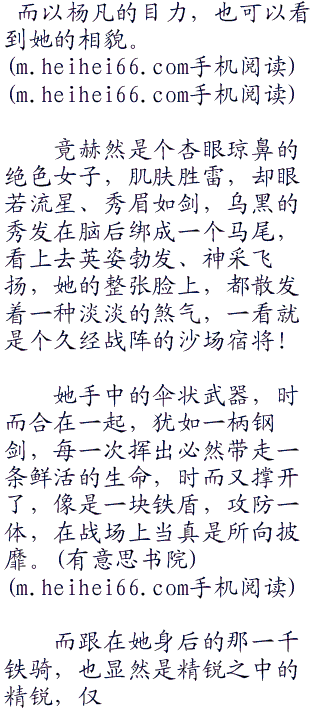 而以杨凡的目力，也可以看
到她的相貌。
(m.heihei66.com手机阅读)
(m.heihei66.com手机阅读)
竟赫然是个杏眼琼鼻的
绝色女子，肌肤胜雷，却眼
若流星、秀眉如剑，乌黑的
秀发在脑后绑成一个马尾，
看上去英姿勃发、神采飞
扬，她的整张脸上，都散发
着一种淡淡的煞气，一看就
是个久经战阵的沙场宿将！
她手中的伞状武器，时
而合在一起，犹如一柄钢
剑，每一次挥出必然带走一
条鲜活的生命，时而又撑开
了，像是一块铁盾，攻防一
体，在战场上当真是所向披
靡。(有意思书院)
(m.heihei66.com手机阅读)
而跟在她身后的那一千
铁骑，也显然是精锐之中的
精锐，仅